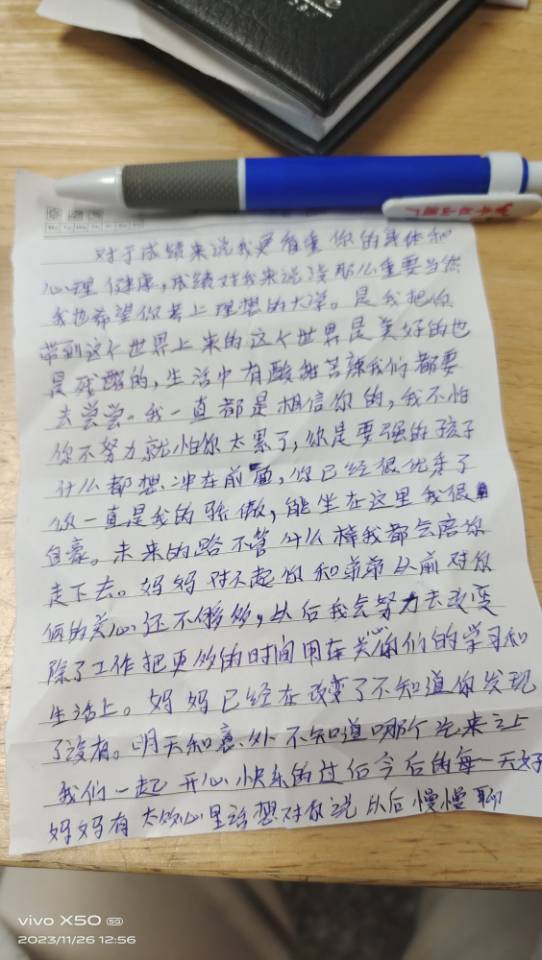 对于成绩来说我更看重你的身体和
心理健康，成绩对我来说没那么重要当然
我也希望你考上理想的大学。是我把你
带到这个世界上来的这个世界是美好的也
是残酷的，生活中有酸甜苦辣我们都要
去尝尝。我一直都是相信你的，我不怕
你不努力就怕你太累了，你是要强的孩子
什么都想冲在前面，你已经很优秀了
你一直是我的骄傲，能坐在这里我很
自豪。未来的路不管什么样我都会陪你
走下去。妈妈对不起你和弟弟从前对你
俩的关心还不够多，从后我会努力去改变
除了工作把更多的时间用在关你们的学习和
生活上。妈妈已经在改变了不知道你发现
了没有。明天和意外不知道哪个先来之上
我们一起开心快乐的过后今后的每一天好
妈妈有太多心里话想对你说从后慢慢聊
vivo X50 5G
2023/11/26 12:56